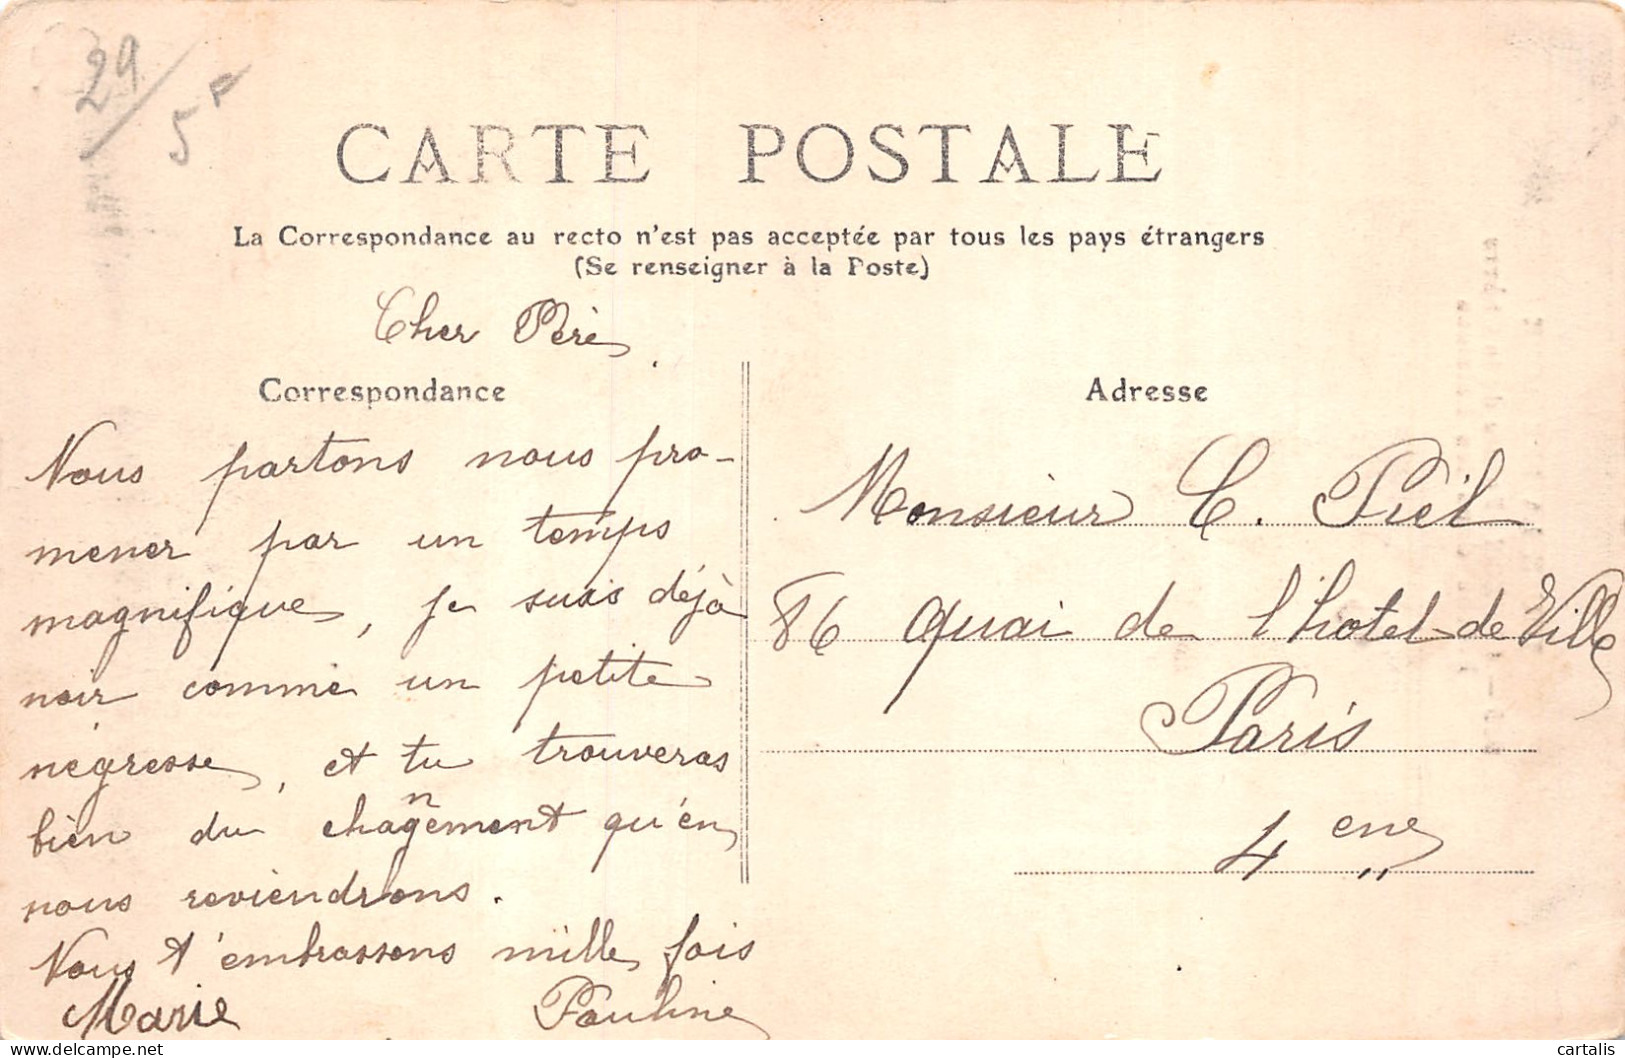 29/5F
CARTE POSTALE
La Correspondance au recto n'est pas acceptée par tous les pays étrangers
(Se renseigner à la Poste)
Cher Père
Correspondance
Nous partons nous pro-
mener par un temps
magnifique, je suis déjà
noir comme un petite
négresse, et tu trouveras
bien du changement qu'en
nous reviendrons.
Nous t'embrassons mille fois
Marie Pauline
Adresse
Monsieur C. Piel
86 quai de l'hotel de Ville
Paris
4 ene
delcampe.net
cartalis